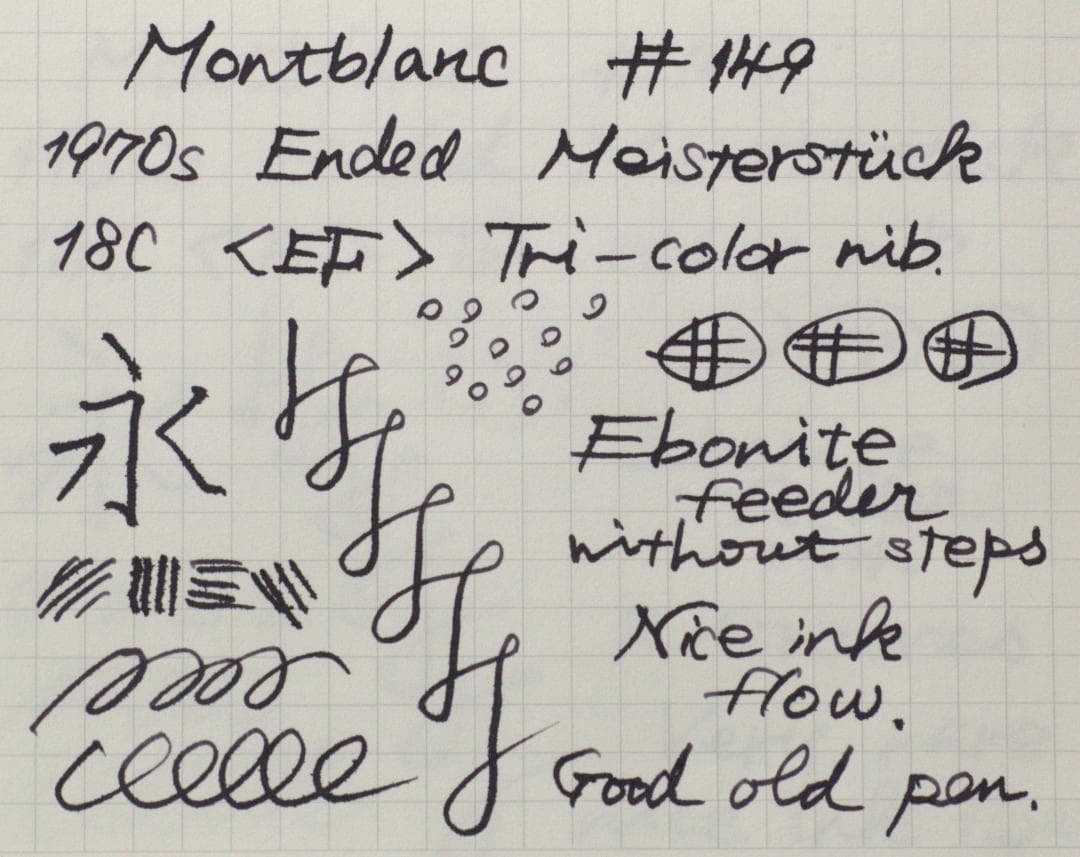 Montblanc #149
1970s Ended Meisterstück
18C <EF> Tri-color nib.
永
Ebonite
feeder
without steps
Nice ink
flow.
Good old pen.